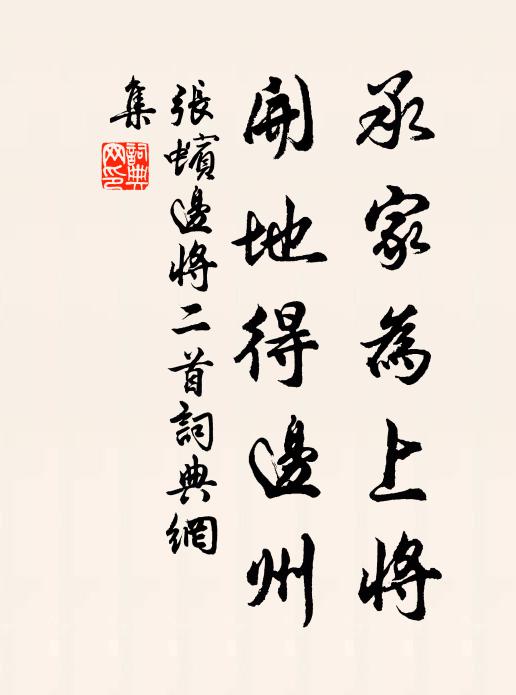 承家為上將
開地得邊州
張蠙邊將二首詞典網
集
詞典
網印